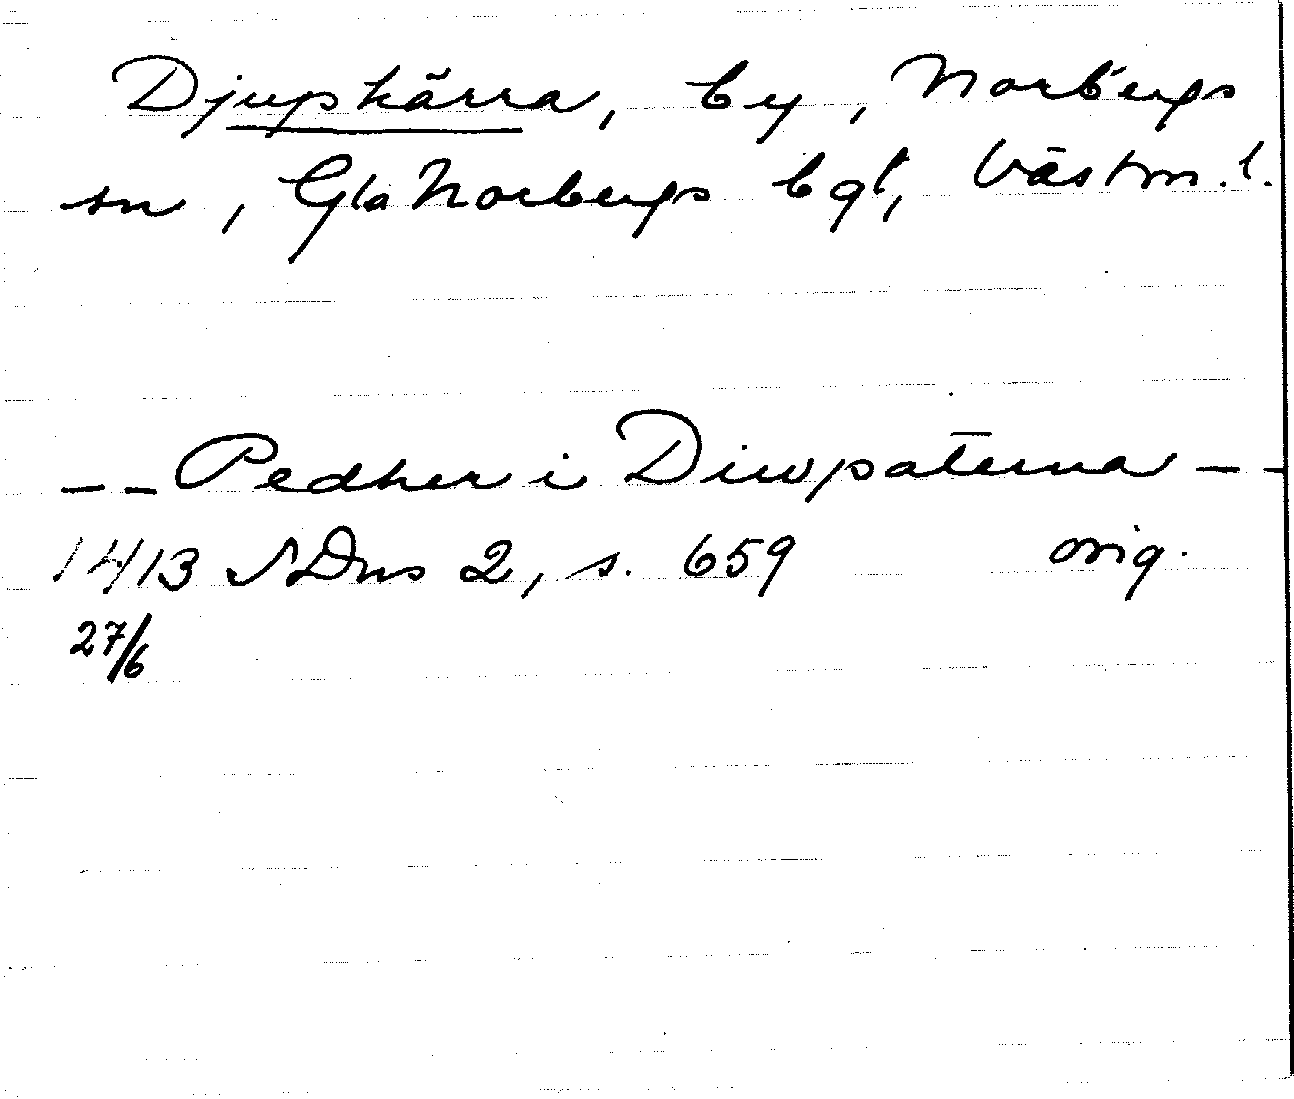 Djupkärra, by, Norbergs
sn, Gla Norbergs bgl, Västm.l.
-- Pedher i Diwpaterna --
1413 SDns 2, s. 659 orig.
27/6